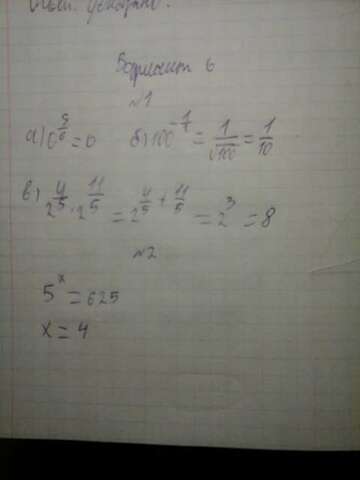 Ответ: доказано.
Вариант 6
№1
а) 0^{5/6} = 0 б) 100^{-1/2} = 1/√100 = 1/10
в) 2^{4/5} · 2^{11/5} = 2^{4/5 + 11/5} = 2^3 = 8
№2
5^x = 625
x = 4